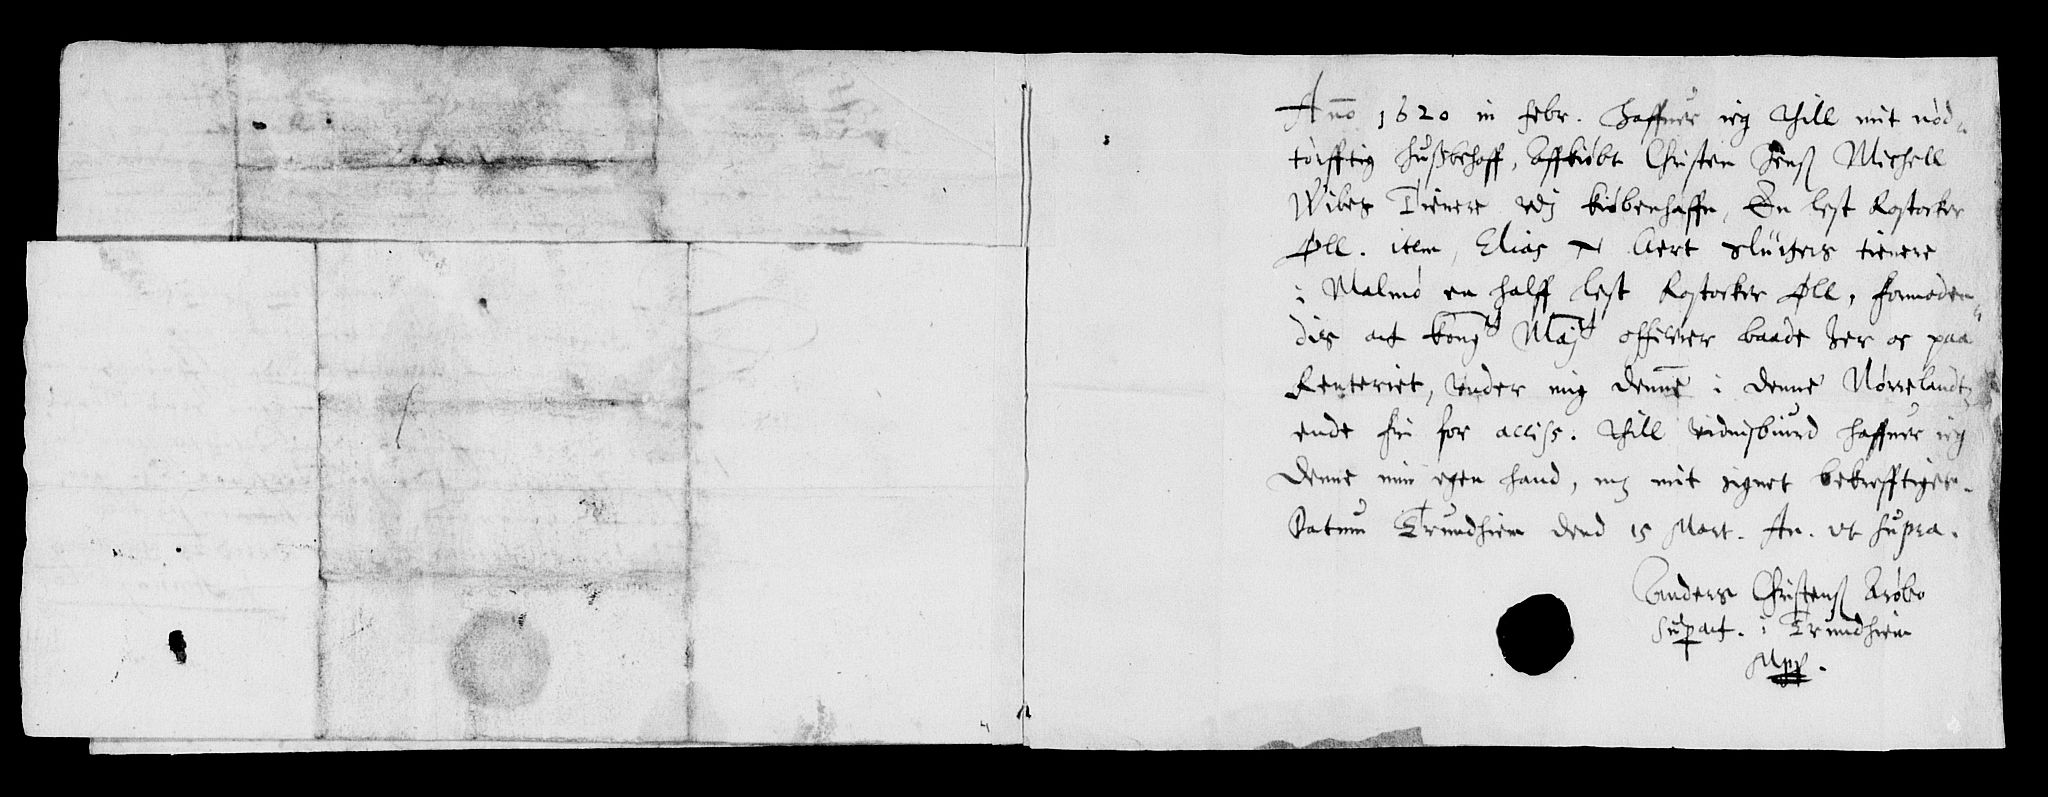 Anno 1620 in Febr. Haffuer ieg Thill mit nød-
tørfftig Hussbehoff, Affkiøbt Christen Jenss Michell
Wibes Tienere vdj Kiøbenhaffn, En lest Rostocker
Øll. item, Elias Aert tienere
i Malmø en halff lest Rostocker Øll, formoden-
dis at Kong Maj officier baade her oc paa
Renteriet, vnder mig denne i denne Nørrelandt
ende fri for accise. Thill vidnisbiurd haffuer ieg
denne min egen hand, mit signet bekrefftiget.
Datum Trundhiem dend 15 Mart. An. vt supra.
Anders Christenss Arøbo
Supat. i Trundhiem
Mpp.